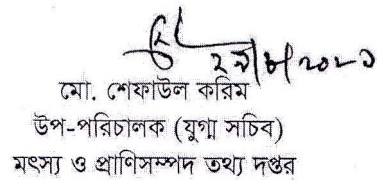 ২৯/৮/২০২১
মো. শেফাউল করিম
উপ-পরিচালক (যুগ্ম সচিব)
মৎস্য ও প্রাণিসম্পদ তথ্য দপ্তর